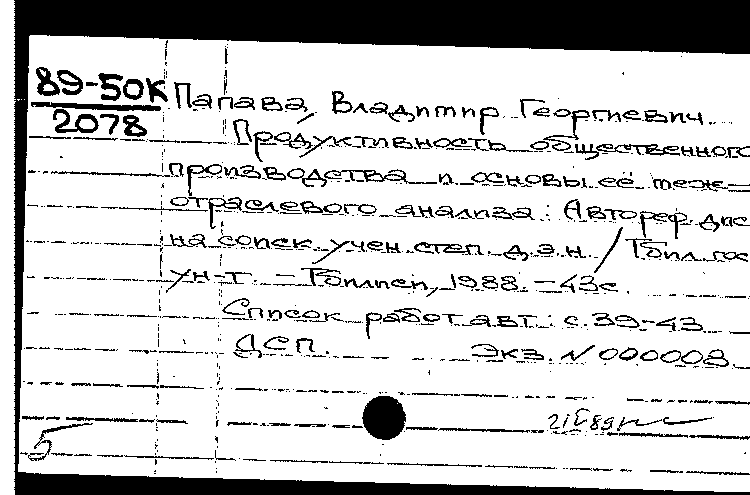 89-50К
2078
Папава, Владимир Георгиевич.
Продуктивность общественного
производства и основы её меж-
отраслевого анализа: Автореф. дис
на соиск. учен. степ. д.э.н. / Тбил. гос
ун-т. – Тбилиси, 1988. – 43с.
Список работ авт.: с. 39-43
ДСП. Экз. N 000008
5